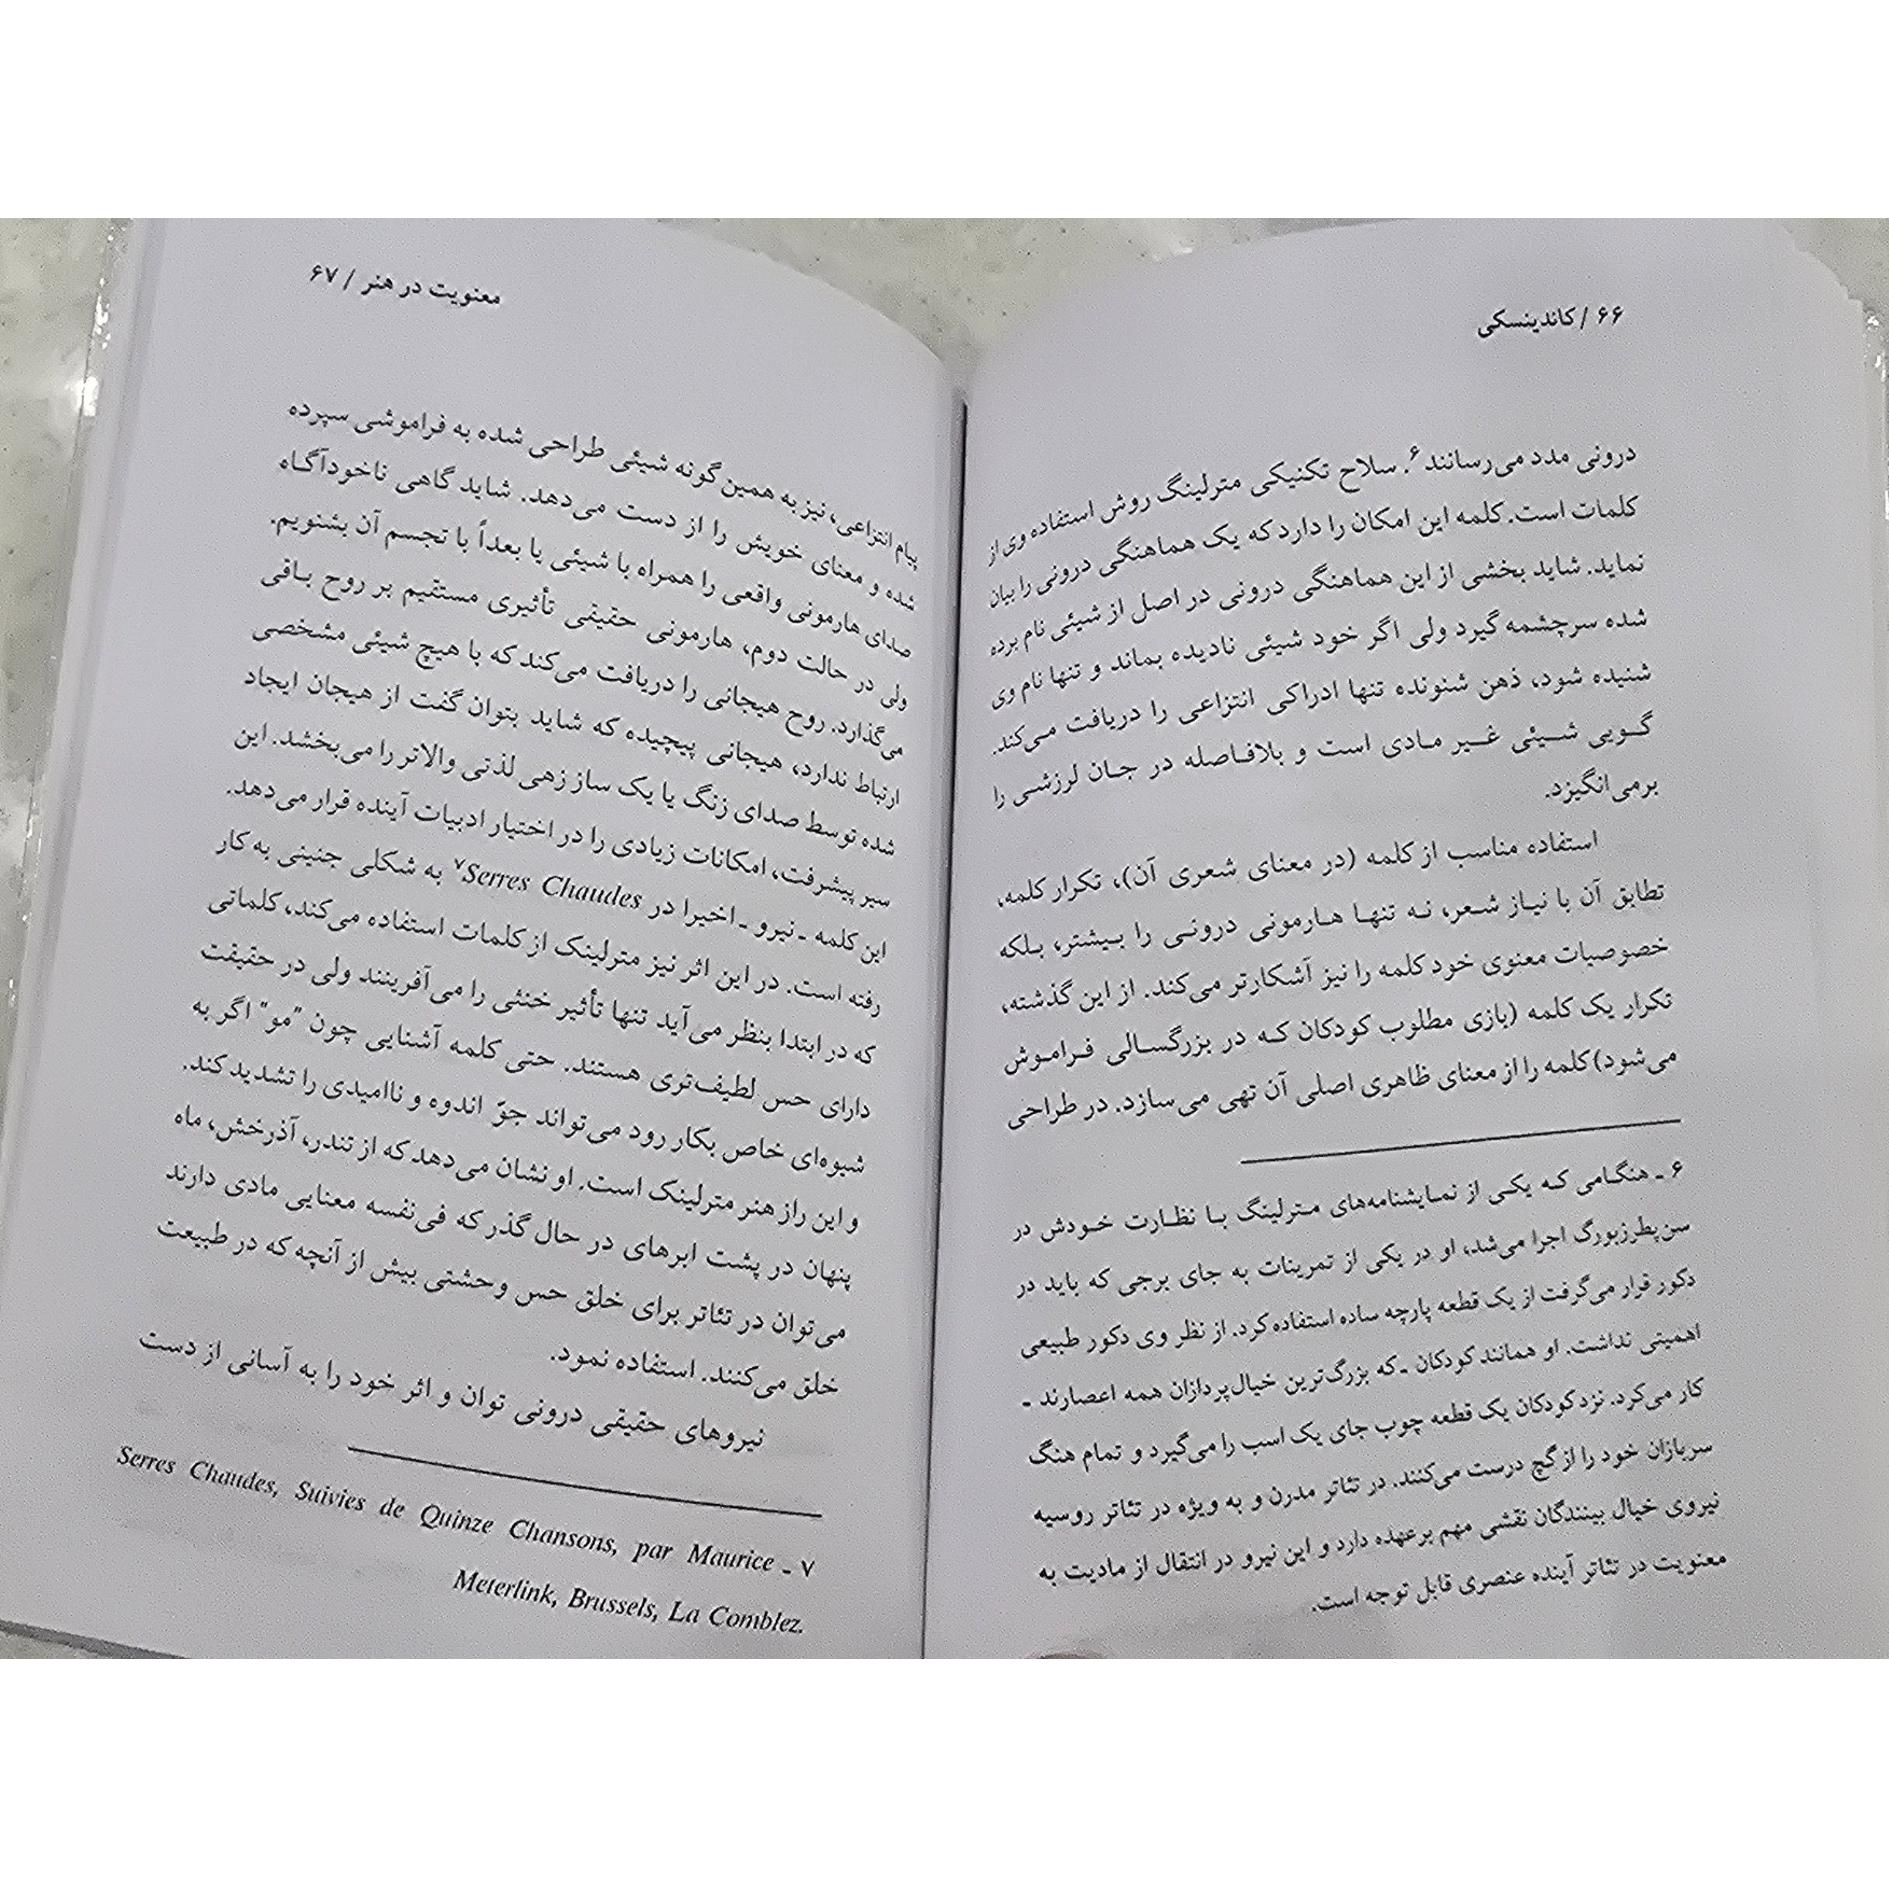 ۶۶ / کاندینسکی
درونی مدد می‌رسانند۶. سلاح تکنیکی مترلینگ روش استفاده وی از
کلمات است. کلمه این امکان را دارد که یک هماهنگی درونی را بیان
نماید. شاید بخشی از این هماهنگی درونی در اصل از شیئی نام برده
شده سرچشمه گیرد ولی اگر خود شیئی نادیده بماند و تنها نام وی
شنیده شود، ذهن شنونده تنها ادراکی انتزاعی را دریافت می‌کند.
گویی شیئی غیر مادی است و بلافاصله در جان لرزشی را
برمی‌انگیزد.
استفاده مناسب از کلمه (در معنای شعری آن)، تکرار کلمه،
تطابق آن با نیاز شعر، نه تنها هارمونی درونی را بیشتر، بلکه
خصوصیات معنوی خود کلمه را نیز آشکارتر می‌کند. از این گذشته،
تکرار یک کلمه (بازی مطلوب کودکان که در بزرگسالی فراموش
می‌شود) کلمه را از معنای ظاهری اصلی آن تهی می‌سازد. در طراحی
۶ ـ هنگامی که یکی از نمایشنامه‌های مترلینگ با نظارت خودش در
سن‌پطرزبورگ اجرا می‌شد، او در یکی از تمرینات به جای برجی که باید در
دکور قرار می‌گرفت از یک قطعه پارچه ساده استفاده کرد. از نظر وی دکور طبیعی
اهمیتی نداشت. او همانند کودکان ـ که بزرگ‌ترین خیال‌پردازان همه اعصارند ـ
کار می‌کرد. نزد کودکان یک قطعه چوب جای یک اسب را می‌گیرد و تمام هنگ
سربازان خود را از گچ درست می‌کنند. در تئاتر مدرن و به ویژه در تئاتر روسیه
نیروی خیال بینندگان نقشی مهم برعهده دارد و این نیرو در انتقال از مادیت به
معنویت در تئاتر آینده عنصری قابل توجه است.
معنویت در هنر / ۶۷
پیام انتزاعی، نیز به همین گونه شیئی طراحی شده به فراموشی سپرده
شده و معنای خویش را از دست می‌دهد. شاید گاهی ناخودآگاه
صدای هارمونی واقعی را همراه با شیئی یا بعداً با تجسم آن بشنویم.
ولی در حالت دوم، هارمونی حقیقی تأثیری مستقیم بر روح باقی
می‌گذارد. روح هیجانی را دریافت می‌کند که با هیچ شیئی مشخصی
ارتباط ندارد، هیجانی پیچیده که شاید بتوان گفت از هیجان ایجاد
شده توسط صدای زنگ یا یک ساز زهی لذتی والاتر را می‌بخشد. این
سیر پیشرفت، امکانات زیادی را در اختیار ادبیات آینده قرار می‌دهد.
این کلمه ـ نیرو ـ اخیرا در Serres Chaudes۷ به شکلی جنینی به کار
رفته است. در این اثر نیز مترلینک از کلمات استفاده می‌کند، کلماتی
که در ابتدا بنظر می‌آید تنها تأثیر خنثی را می‌آفرینند ولی در حقیقت
دارای حس لطیف‌تری هستند. حتی کلمه آشنایی چون "مو" اگر به
شیوه‌ای خاص بکار رود می‌تواند جوّ اندوه و ناامیدی را تشدید کند.
و این راز هنر مترلینک است. او نشان می‌دهد که از تندر، آذرخش، ماه
پنهان در پشت ابرهای در حال گذر که فی‌نفسه معنایی مادی دارند
می‌توان در تئاتر برای خلق حس وحشتی بیش از آنچه که در طبیعت
خلق می‌کنند. استفاده نمود.
نیروهای حقیقی درونی توان و اثر خود را به آسانی از دست
۷ ـ Serres Chaudes, Suivies de Quinze Chansons, par Maurice
Meterlink, Brussels, La Comblez.